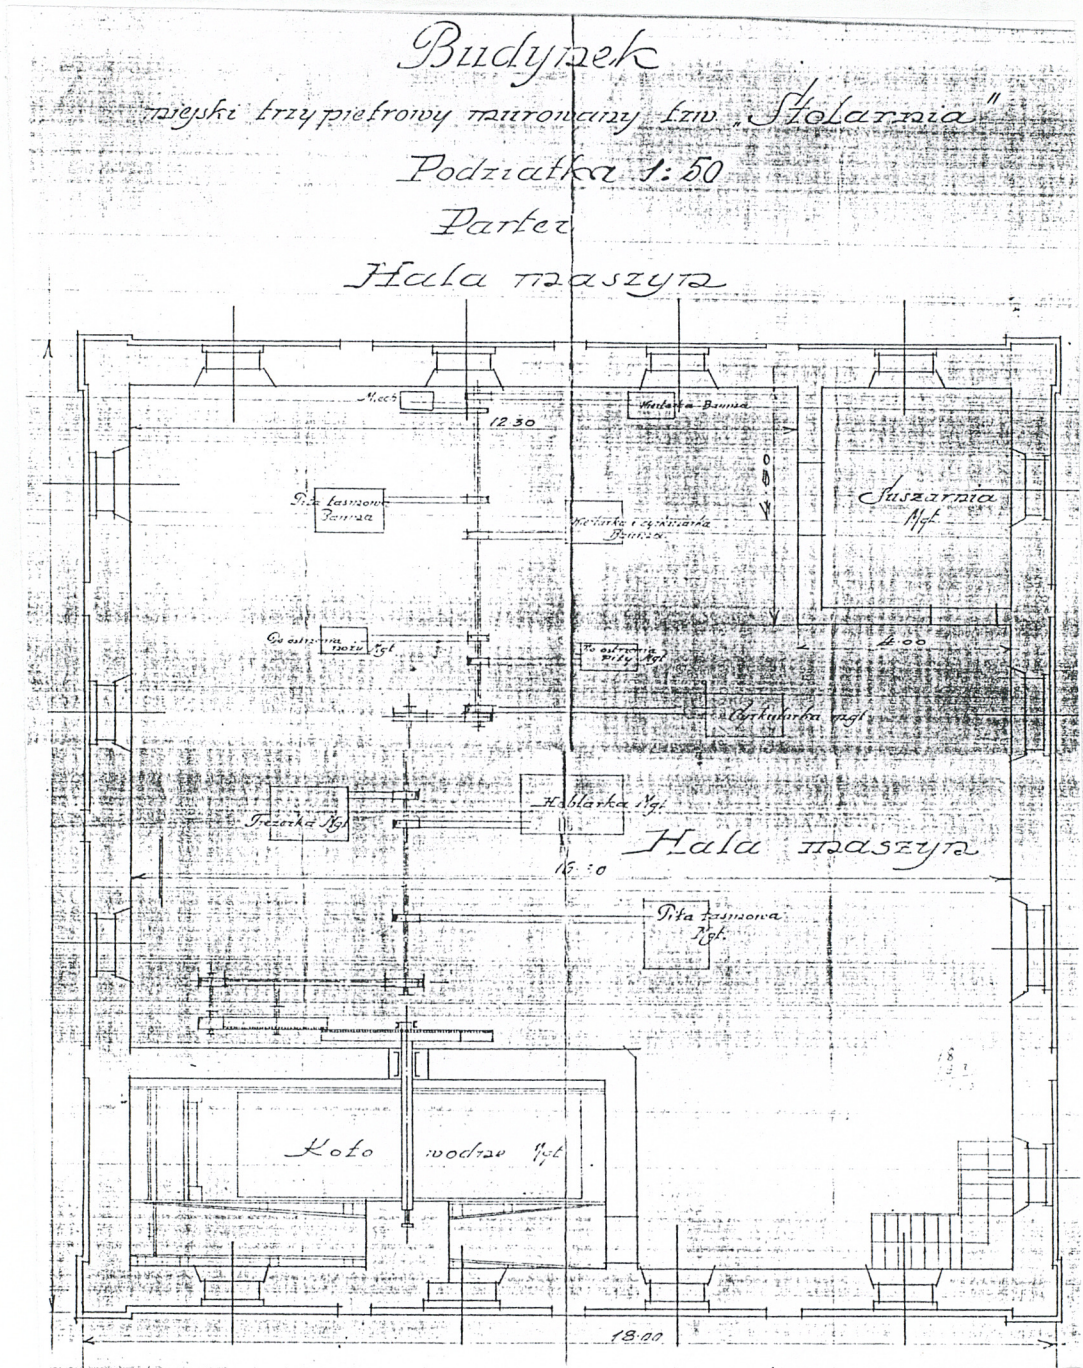 Budynek
miejski trzypietrowy murowany tzw. „Stolarnia"
Podziałka 1:50
Parter
Hala maszyn
Miech
12 30
Wiertarka Bamsa
Piła taśmowa
Bamsa
Suszarnia
Mgt
Bamsa
Do ostrzenia
noży Mgt
Do ostrzenia
piły Mgt
4.00
Cyrkularka mgt
Frezerka Mgt
Heblarka Mgt
Hala maszyn
Piła taśmowa
Mgt.
Koło wodne Mgt
18.00